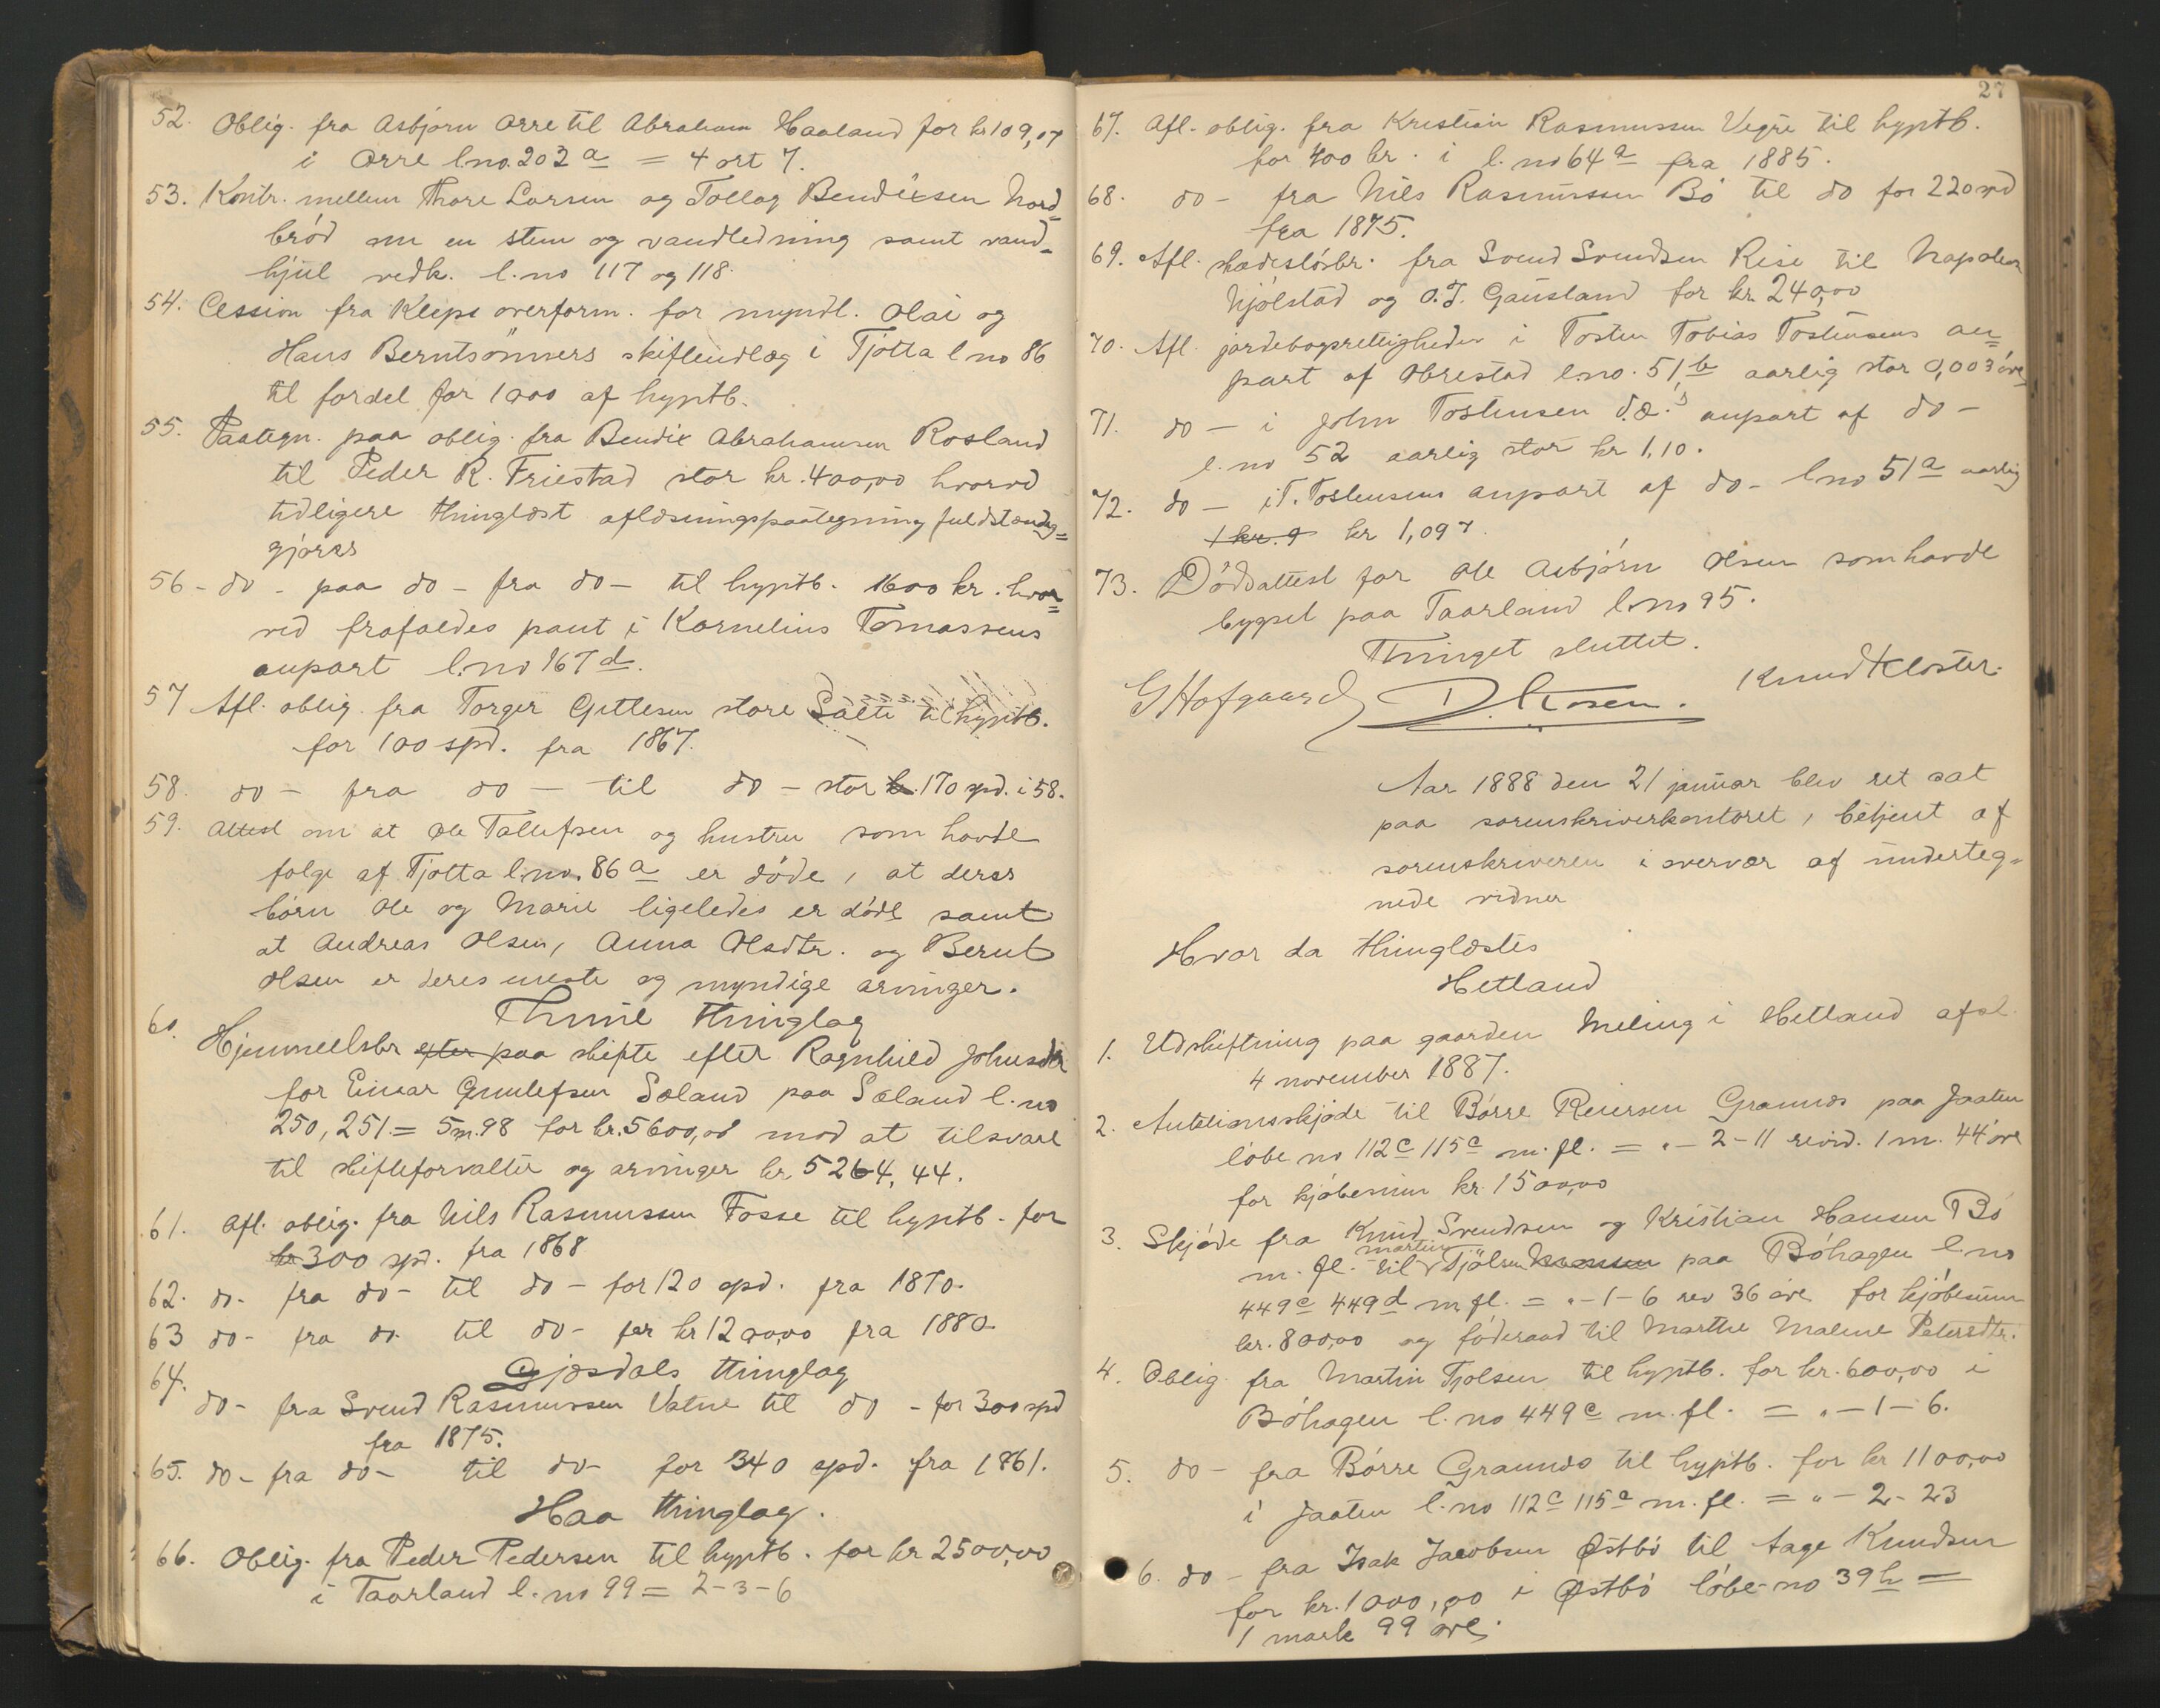 52. Oblig. fra Asbjørn Orre til Abraham Haaland for kr 109,07
i Orre l.no. 203 a = 4 ort 7.
53. Kontr. mellem Thore Larsen og Tollag Bendixsen Nord-
brød om en stem og vandledning samt vand-
hjul vedk. l.no 117 og 118.
54. Cession fra Kleps overform. for myndl. Olai og
Hans Berntsønners skifteudlæg i Tjøtta l no 86
til fordel for 1000 af hyptb.
55. Paategn. paa oblig. fra Bendix Abrahamsen Rosland
til Peder R. Friestad stor kr. 400,00 hvorved
tidligere thinglæst aflæsningspaategning fuldstændig-
gjøres
56 - do - paa do - fra do - til hyptb. 1600 kr. hvor-
ved frafaldes pant i Kornelius Tomassens
anpart l.no 167 d.
57 Afl. oblig. fra Torger Gittlesen store Salte til hyptb.
for 100 spd. fra 1867.
58. do - fra do - til do - stor kr. 170 spd. i 58.
59. Attest om at Ole Tallefsen og hustru som havde
følge af Tjøtta l.no. 86 a er døde, at deres
børn Ole og Marie ligeledes er døde samt
at Andreas Olsen, Anna Olsdtr. og Bernt
Olsen er deres eneste og myndige arvinger.
Thime thinglag
60. Hjemmelsbr efter paa skifte efter Ragnhild Johnsdr
for Einar Gunlefsen Søland paa Søland l. no
250, 251 = 5 m. 98 for kr. 5600,00 mod at tilsvare
til skifteforvalter og arvinger kr 5264,44.
61. Afl. oblig. fra Nils Rasmussen Fosse til hyptb. for
kr 300 spd. fra 1868
62. do - fra do - til do - for 120 spd. fra 1870.
63 do - fra do - til do - for kr 1200,00 fra 1880.
Gjæsdals thinglag
64. do - fra Svend Rasmussen Vatne til do - for 300 spd
fra 1875.
65. do - fra do - til do - for 340 spd. fra 1861.
Haa thinglag.
66. Oblig. fra Peder Pedersen til hyptb. for kr 2500,00
i Taarland l. no 99 = 2-3-6
27
67. Afl. oblig. fra Kristian Rasmussen Vegre til hyptb.
for 400 kr. i l. no 64 a fra 1885.
68. do - fra Nils Rasmussen Bø til do for 220 spd
fra 1875.
69. Afl. skadesløsbr. fra Svend Svendsen Rise til Napoleon
Njølstad og O. T. Gausland for kr. 240,00
70. Afl. jordebogsrettigheder i Tosten Tobias Tostensens an-
part af Obrestad l.no. 51, b aarlig stor 0,003 øre
71. do - i John Tostensen d.æ.s anpart af do -
l. no 52 aarlig stor kr 1,10.
72. do - i T. Tostensens anpart af do - l no 51 a aarlig
1 kr. 9 kr 1,097.
73. Dødsattest for Ole Asbjørn Olsen som havde
bygsel paa Taarland l.no 95.
Thinget sluttet.
G Hofgaard D. Rosen. Knud Kloster.
Aar 1888 den 21 januar blev ret sat
paa sorenskriverkontoret, betjent af
sorenskriveren i overvær af underteg-
nede vidner
Hvor da thinglæstes
Hetland
1. Udskiftning paa gaarden Meling i Hetland afsl.
4 november 1887.
2. Auktionsskjøde til Børre Reiersen Grannes paa Jaaten
løbe no 112 c 115 c m. fl. = " - 2 - 11 revid. 1 m. 44 øre
for kjøbesum kr. 1500,00
3. Skjøde fra Knud Svendsen og Kristian Hansen Bø
m. fl. til Martin Tjølsen paa Bøhagen l. no
449 c 449 d m fl. = " - 1 - 6 rev 36 øre for kjøbesum
kr. 800,00 og føderaad til Marthe Malene Petersdtr.
4. Oblig. fra Martin Tjølsen til hyptb. for kr. 600,00 i
Bøhagen l. no 449 c m. fl. = " - 1 - 6.
5. do - fra Børre Grannes til hyptb. for kr 1100,00
i Jaaten l. no 112 c 115 c m. fl. = " - 2 - 23
6. do - fra Isak Jacobsen Østbø til Aage Knudsen
for kr. 1000,00 i Østbø løbe-no 39 h =
1 mark 99 øre.